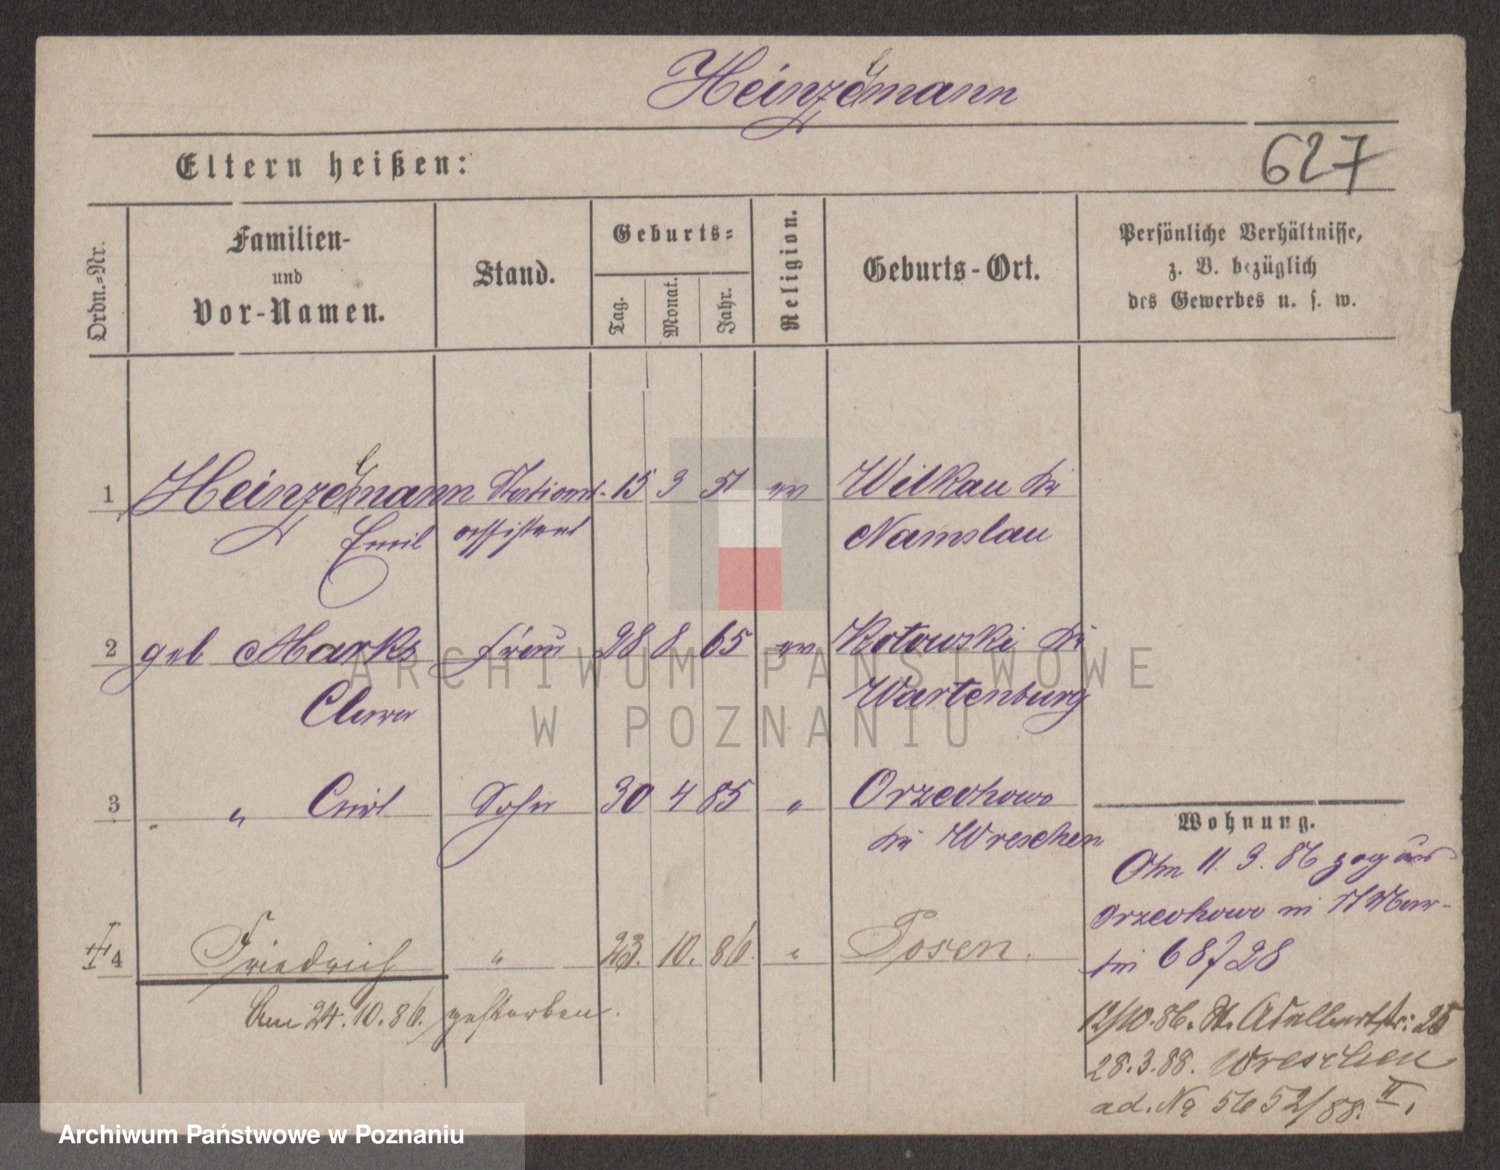 Heinzelmann
627
Eltern heißen:
Ordn.-Nr.
Familien-
und
Vor-Namen.
Stand.
Geburts-
Tag.
Monat.
Jahr.
Religion.
Geburts-Ort.
Persönliche Verhältnisse,
z. B. bezüglich
des Gewerbes u. s. w.
1 Heinzelmann Stations- 15 3 51 ev Wilkau Kr
Emil assistent Namslau
2 geb Marks Frau 28 8 65 ev Kotowski Kr
Clara Wartenburg
3 " Curt Sohn 30 4 85 " Orzechowo
Kr Wreschen
4 Friedrich " 23. 10. 86. " Posen.
Am 24.10.86. gestorben.
Wohnung.
Am 11.3.86 zog aus
Orzechowo in St Mar-
tin 68
12/10.86. St. Adalbertstr: 25
28.3.88. Wreschen
ad. No 5652/88. II.
ARCHIWUM PAŃSTWOWE
W POZNANIU
Archiwum Państwowe w Poznaniu